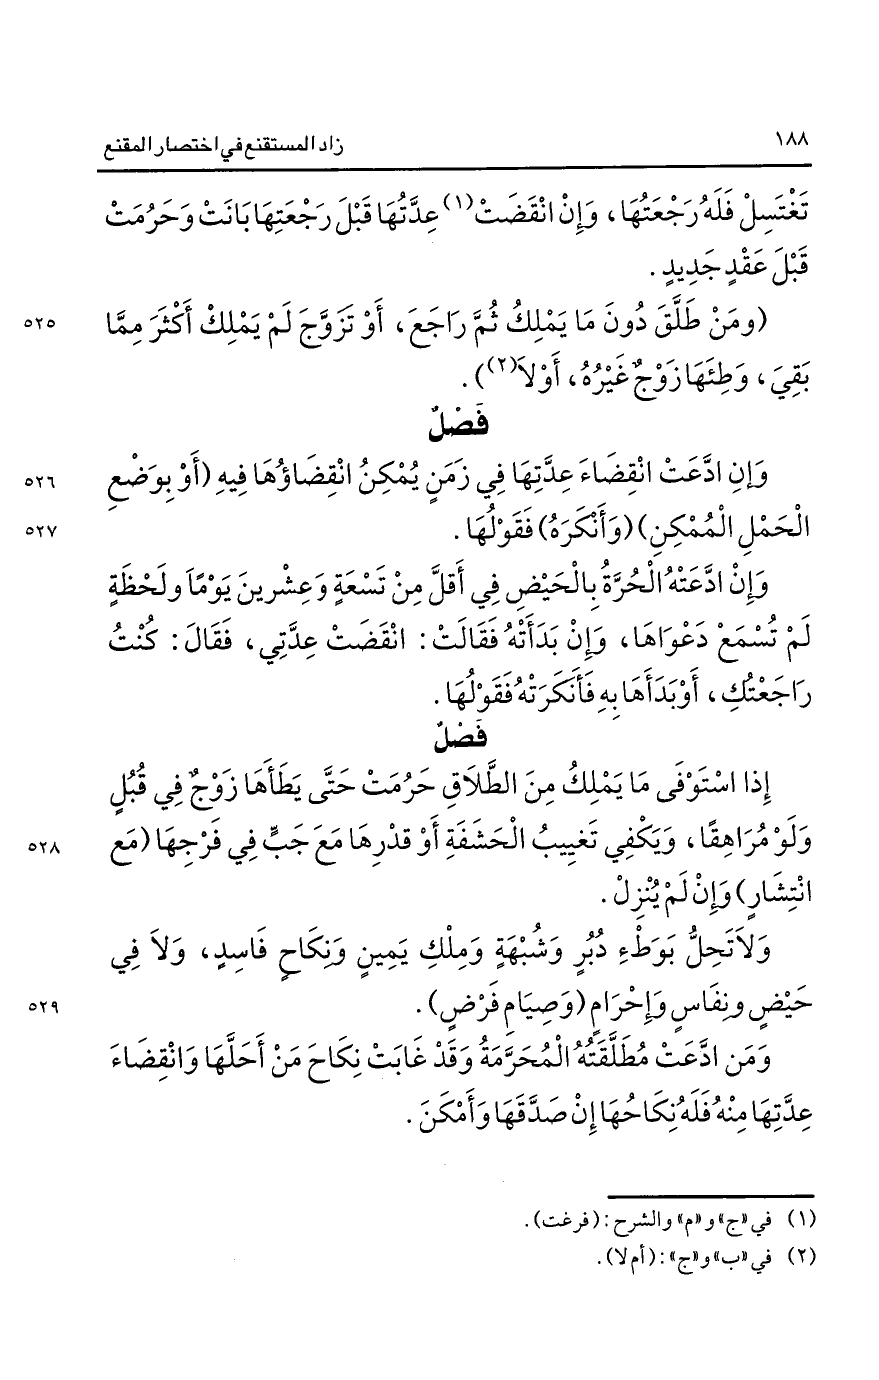 ١٨٨ زاد المستقنع في اختصار المقنع
تَغْتَسِلْ فَلَهُ رَجْعَتُهَا، وَإِنْ انْقَضَتْ(١) عِدَّتُهَا قَبْلَ رَجْعَتِهَا بَانَتْ وَحَرُمَتْ
قَبْلَ عَقْدٍ جَدِيدٍ .
(ومَنْ طَلَّقَ دُونَ مَا يَمْلِكُ ثُمَّ رَاجَعَ، أَوْ تَزَوَّجَ لَمْ يَمْلِكْ أَكْثَرَ مِمَّا ٥٢٥
بَقِيَ، وَطِئَهَا زَوْجٌ غَيْرُهُ، أَوْلاَ(٢)) .
فَصْلٌ
وَإِنِ ادَّعَتْ انْقِضَاءَ عِدَّتِهَا فِي زَمَنٍ يُمْكِنُ انْقِضَاؤُهَا فِيهِ (أَوْ بِوَضْعِ ٥٢٦
الْحَمْلِ الْمُمْكِنِ) (وَأَنْكَرَهُ) فَقَوْلُهَا . ٥٢٧
وَإِنْ ادَّعَتْهُ الْحُرَّةُ بِالْحَيْضِ فِي أَقَلَّ مِنْ تَسْعَةٍ وَعِشْرينَ يَوْمًا ولَحْظَةٍ
لَمْ تُسْمَعْ دَعْوَاهَا، وَإِنْ بَدَأَتْهُ فَقَالَتْ : انْقَضَتْ عِدَّتِي، فَقَالَ : كُنْتُ
رَاجَعْتُكِ، أَوْ بَدَأَهَا بِهِ فَأَنكَرَتْهُ فَقَوْلُهَا .
فَصْلٌ
إِذا اسْتَوْفَى مَا يَمْلِكُ مِنَ الطَّلَاقِ حَرُمَتْ حَتَّى يَطَأَهَا زَوْجٌ فِي قُبُلٍ
وَلَوْ مُرَاهِقًا، وَيَكْفِي تَغيِيبُ الْحَشَفَةِ أَوْ قدْرِهَا مَعَ جَبٍّ فِي فَرْجِهَا (مَع ٥٢٨
انْتِشَارٍ) وَإِنْ لَمْ يُنْزِلْ .
وَلاَ تَحِلُّ بَوَطْءِ دُبُرٍ وَشُبْهَةٍ وَمِلْكِ يَمِينٍ وَنِكَاحٍ فَاسِدٍ، وَلاَ فِي
حَيْضٍ ونِفَاسٍ وَإِحْرَامٍ (وَصِيَامِ فَرْضٍ) . ٥٢٩
وَمَن ادَّعَتْ مُطَلَّقَتُهُ الْمُحَرَّمَةُ وَقَدْ غَابَتْ نِكَاحَ مَنْ أَحَلَّهَا وَانْقِضَاءَ
عِدَّتِهَا مِنْهُ فَلَهُ نِكَاحُهَا إِنْ صَدَّقَهَا وَأَمْكَنَ .
(١) في «ج» و «م» والشرح : (فرغت) .
(٢) في «ب» و «ج» : (أم لا) .